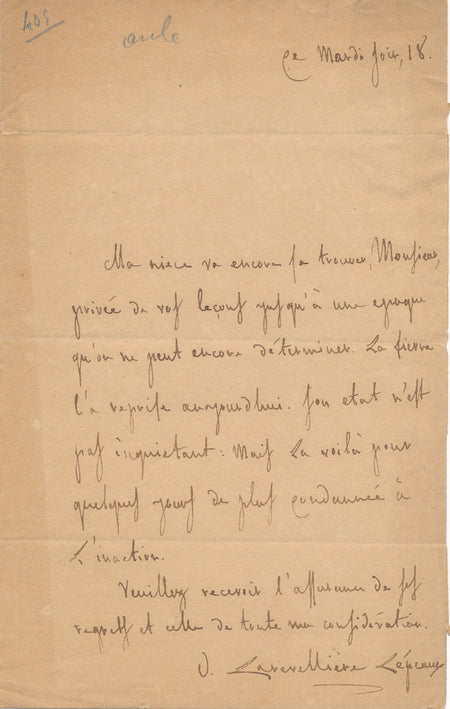 405
Ce Mardi soir, 18.
Ma nièce va encore se trouver, Monsieur,
privée de vos leçons jusqu'à une epoque
qu'on ne peut encore déterminer. La fievre
l'a reprise aujourd'hui. Son etat n'est
pas inquietant : Mais la voilà pour
quelques jours de plus condamnée à
l'inaction.
Veuillez recevoir l'assurance de ses
regrets et celle de toute ma considération.
O. Larevellière Lépeaux